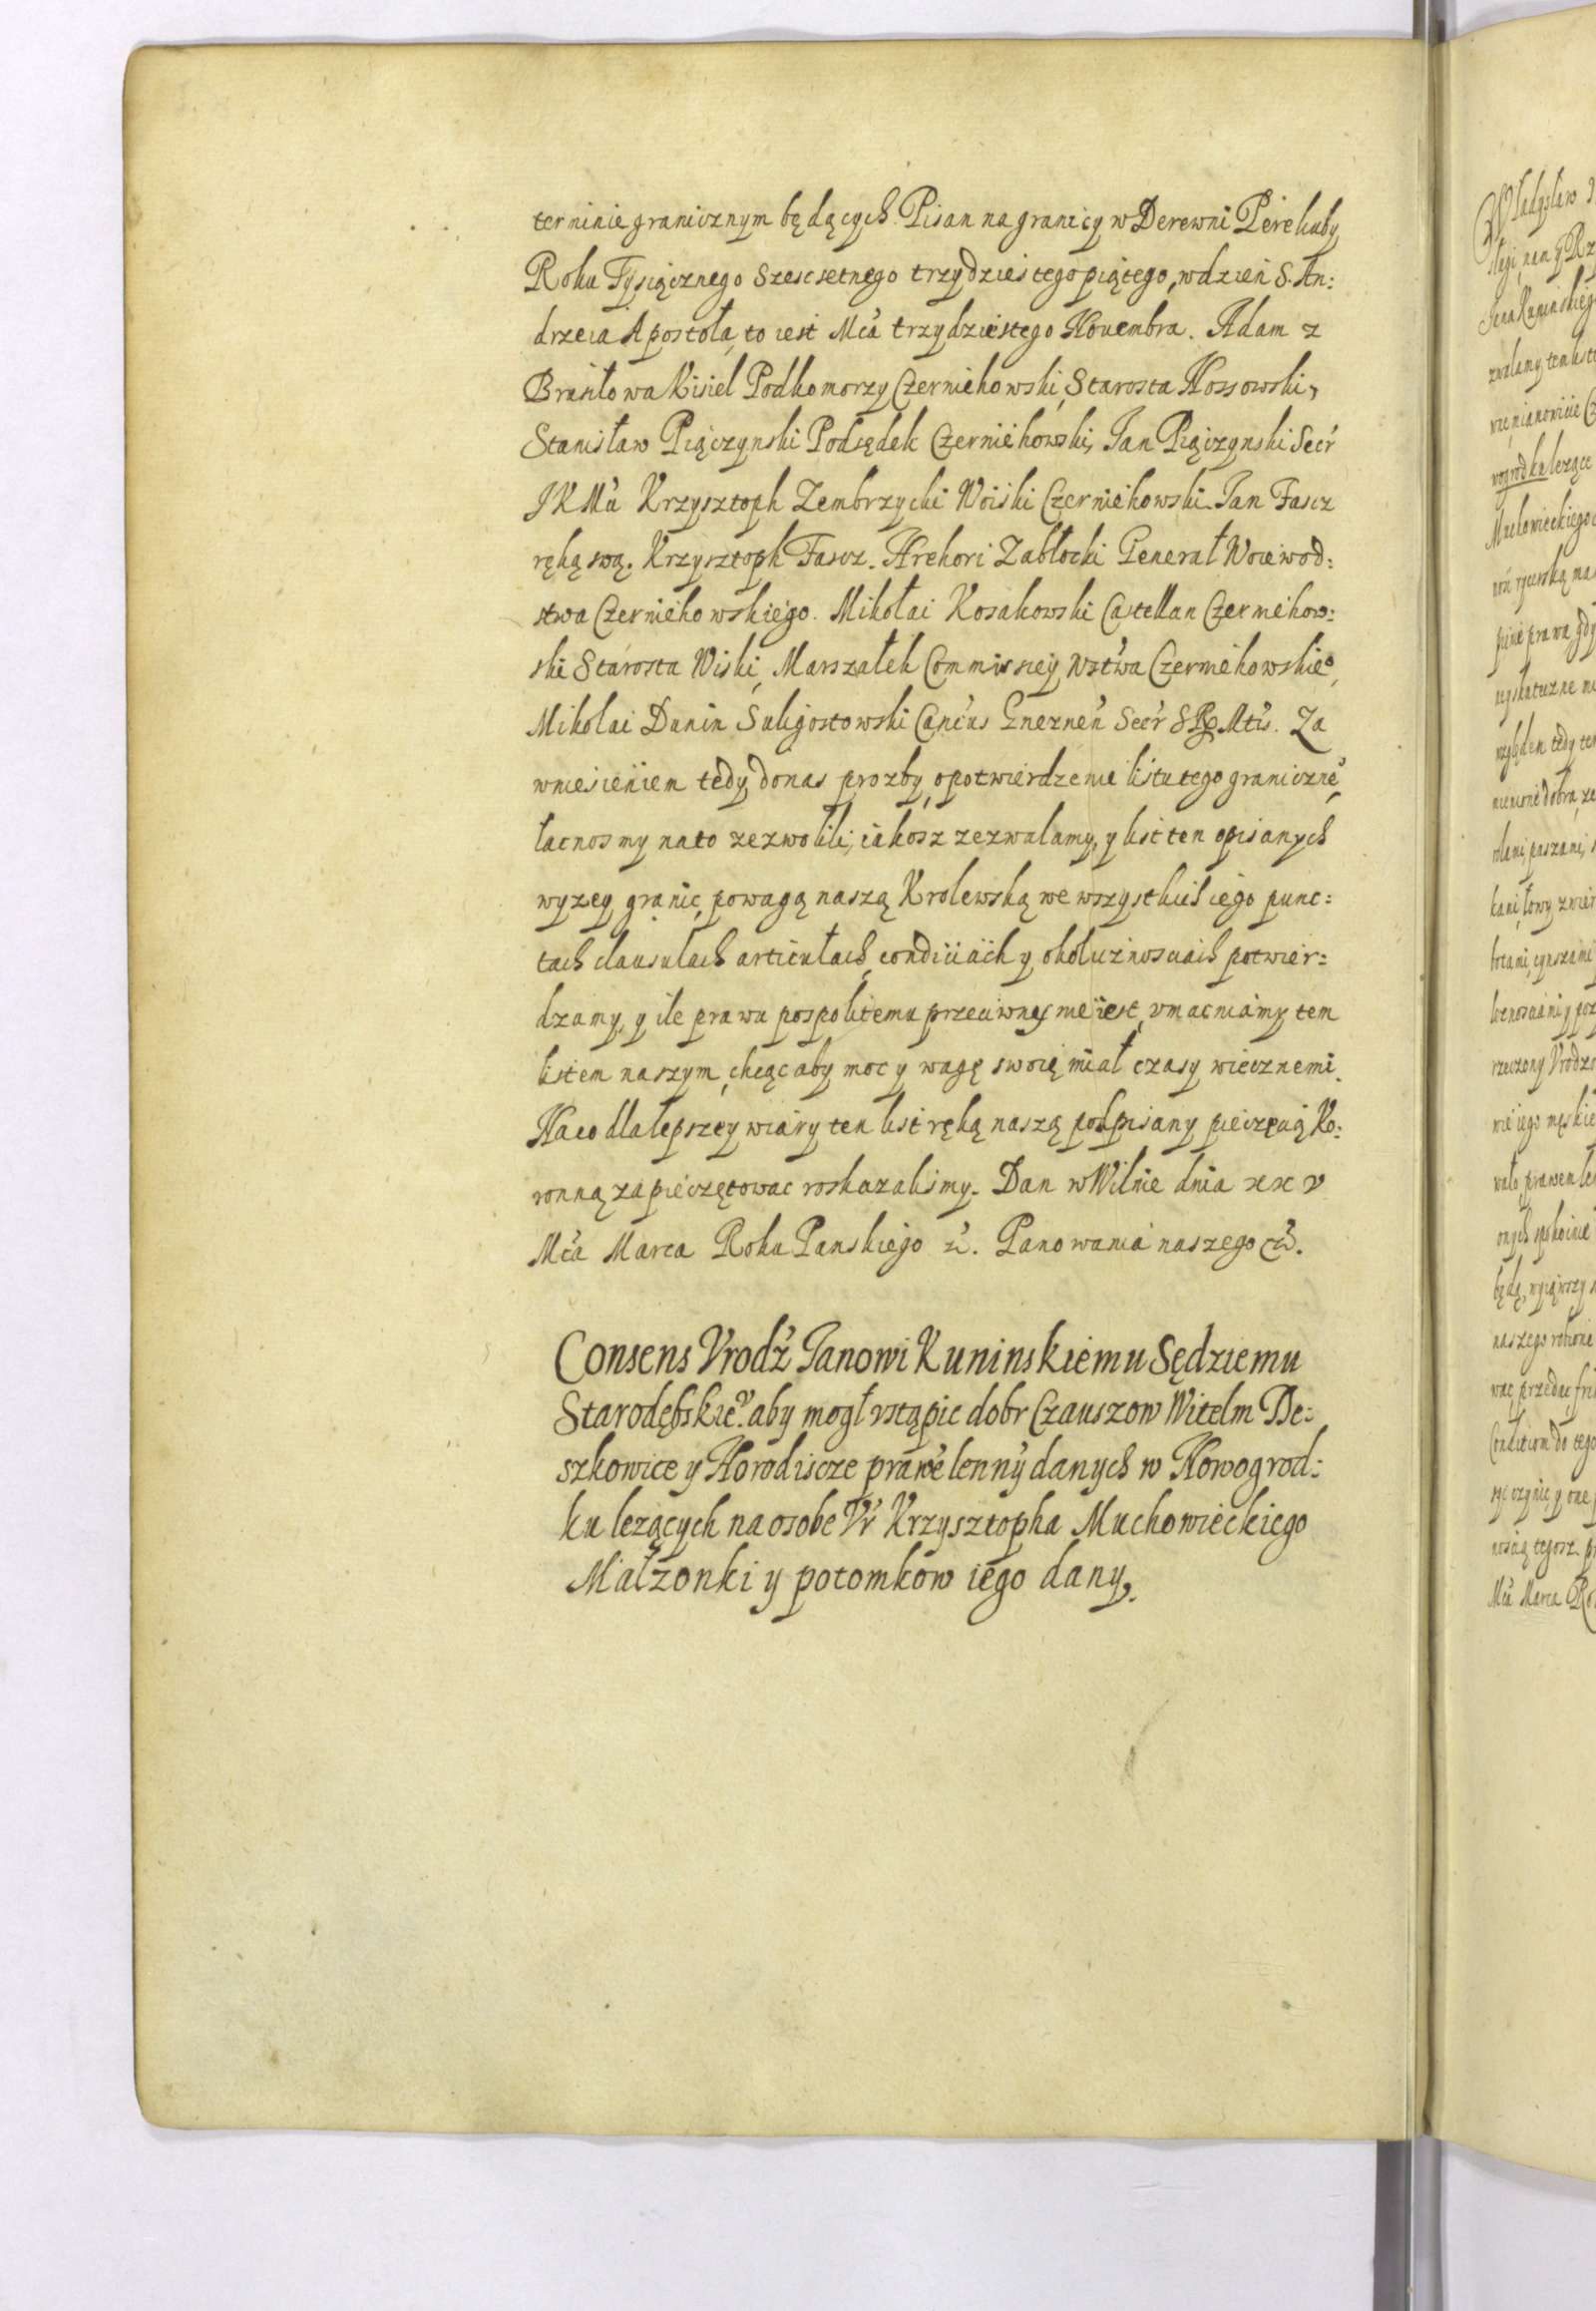 terminie granicznym będących. Pisan na granicy w Derewni Perekuby
Roku Tysiącznego Szescsetnego trzydziestego piątego, w dzien S. An:
drzeia Apostoła, to iest Mca trzydziestego Nouembra. Adam z
Brusiłowa Kisiel Podkomorzy Czerniehowski, Starosta Nossowski,
Stanisław Piączynski Podsędek Czerniehowski, Jan Piączynski Secr
JKMci Krzysztoph Zembrzycki Woiski Czerniehowski. Jan Fascz
ręką swą. Krzysztoph Fascz. Hrehori Zabłocki Generał Woiewod:
stwa Czerniehowskiego. Mikołai Kosakowski Castellan Czerniehow:
ski Starosta Wiski, Marszałek Commissiey Wstwa Czerniehowskieo,
Mikolai Dunin Suligostowski Cancus Gneznen Secr SR Mtis. Za
wniesieniem tedy do nas prozby, o potwierdzenie listu tego graniczne,
łacnosmy na to zezwolili, iakosz zezwalamy, y list ten opisanych
wyzey granic, powagą naszą Krolewską we wszystkich iego punc:
tach clausulach articułach, condiciach y okolicznosciach potwier:
dzamy, y ile prawu pospolitemu przeciwny nie iest, vmacniamy tem
listem naszym, chcąc aby moc y wagę swoię miał czasy wiecznemi.
Na co dla lepszey wiary ten list ręką naszą podpisany pieczęcią Ko:
ronną zapieczętowac roskazalismy. Dan w Wilnie dnia xxv
Mca Marca Roku Panskiego ut. Panowania naszego ut.
Consens Vrodz Janowi Kuninskiemu Sędziemu
Starodębskie. aby mogł vstąpic dobr Czauszow Witelm De:
szkowice y Horodiscze prawe lenny danych w Nowogrod:
ku lezących na osobe Vr Krzysztopha Muchowieckiego
Małzonki y potomkow iego dany.